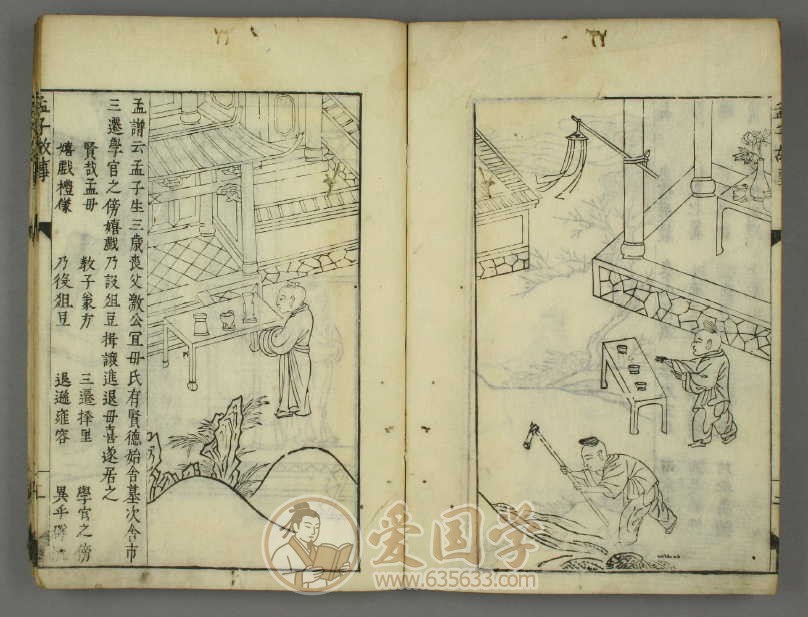 孟譜云孟子生三歲喪父激公冝毋氏有賢德始舍墓次舍市
三遷學官之傍嬉戲乃設俎豆揖讓進退毋喜遂居之
賢哉孟毋 教子義方 三遷擇里 學官之傍
嬉戲禮儀 乃俎豆 退遜雍容 異乎
孟子故事
爱国学
www.635633.com